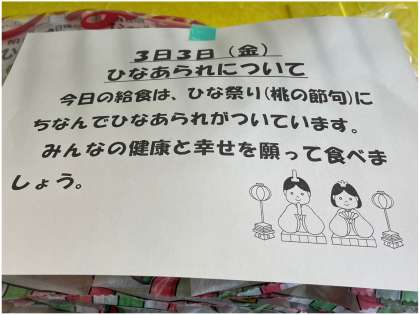 3日3日（金）
ひなあられについて
今日の給食は、ひな祭り(桃の節句)に
ちなんでひなあられがついています。
みんなの健康と幸せを願って食べま
しょう。